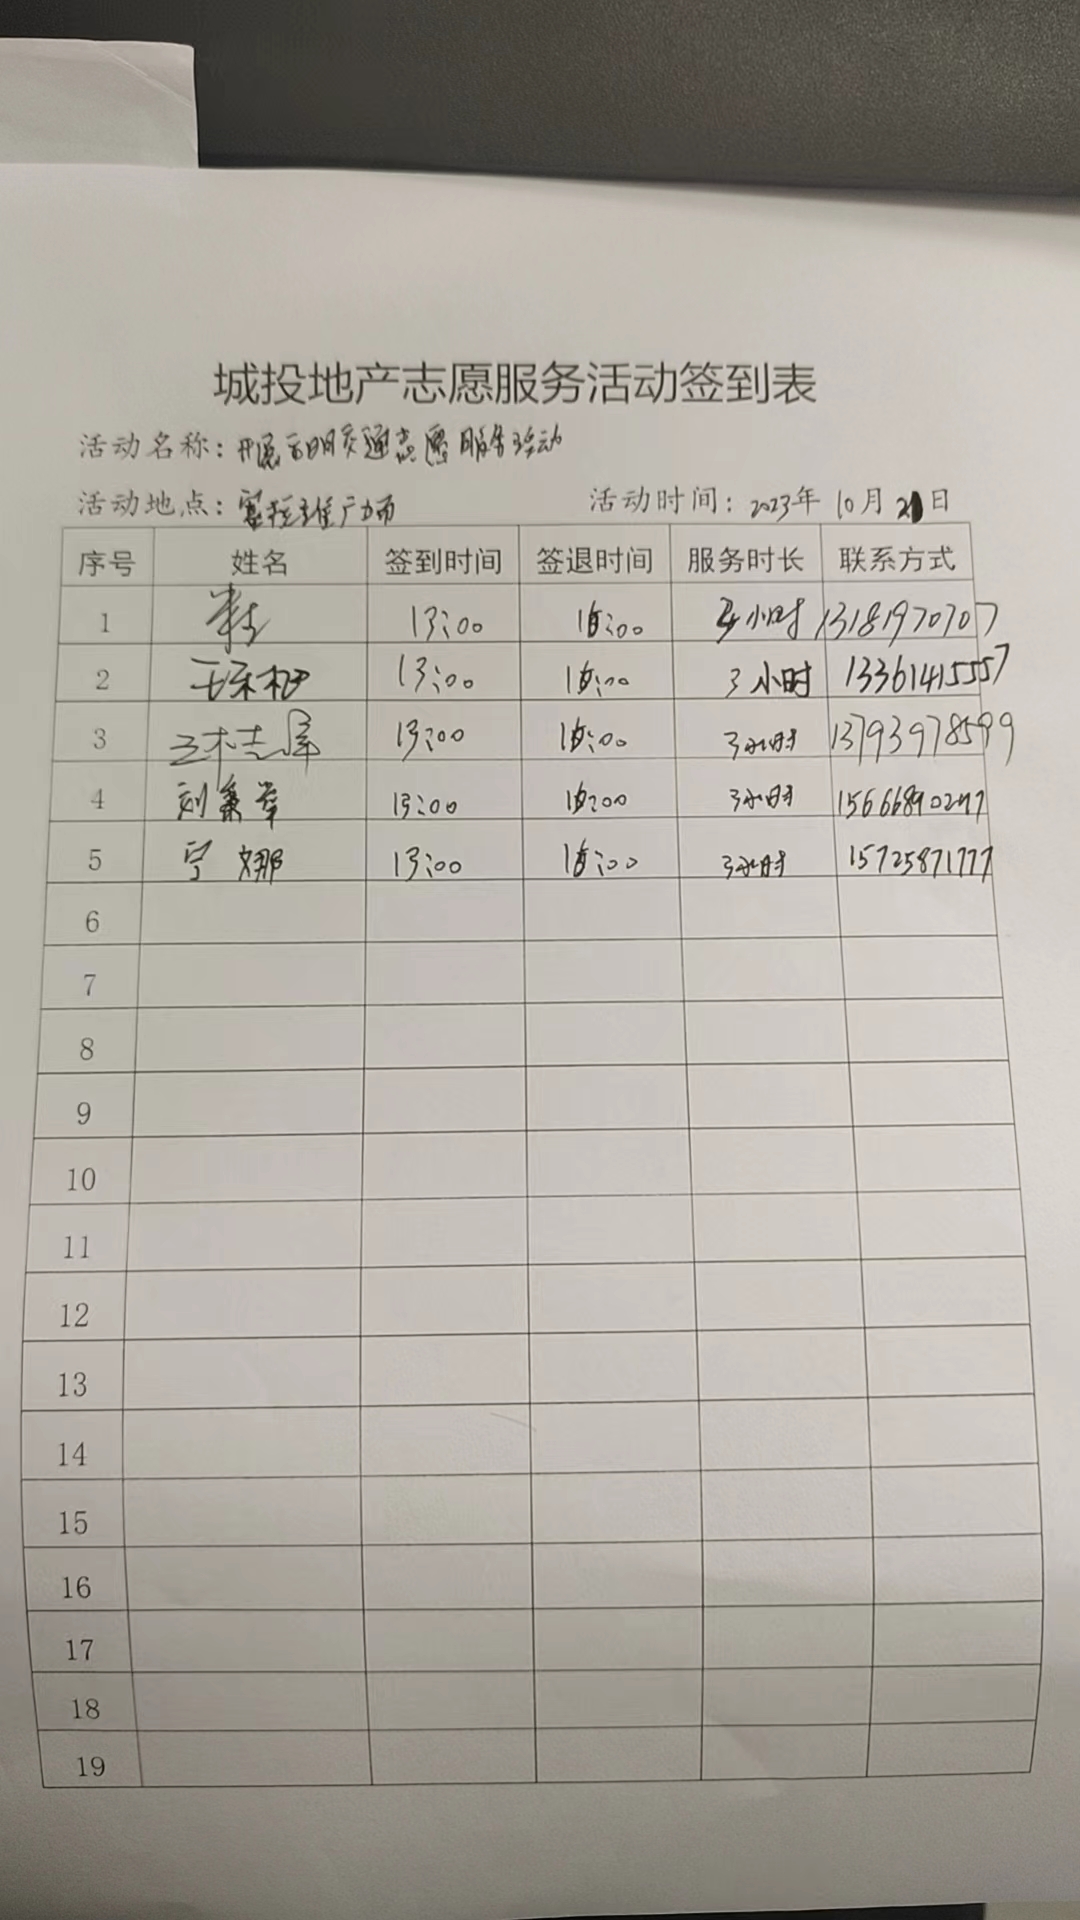 城投地产志愿服务活动签到表
活动名称：开展文明交通志愿服务活动
活动地点：广场 活动时间：2023年 10月 日
序号 姓名 签到时间 签退时间 服务时长 联系方式
1 13:00 16:00 小时 13181970707
2 13:00 16:00 3小时 13361415557
3 13:00 16:00 3小时 13793978599
4 刘 13:00 16:00 3小时
5 宁娜 13:00 16:00 3小时 15725871777
6
7
8
9
10
11
12
13
14
15
16
17
18
19